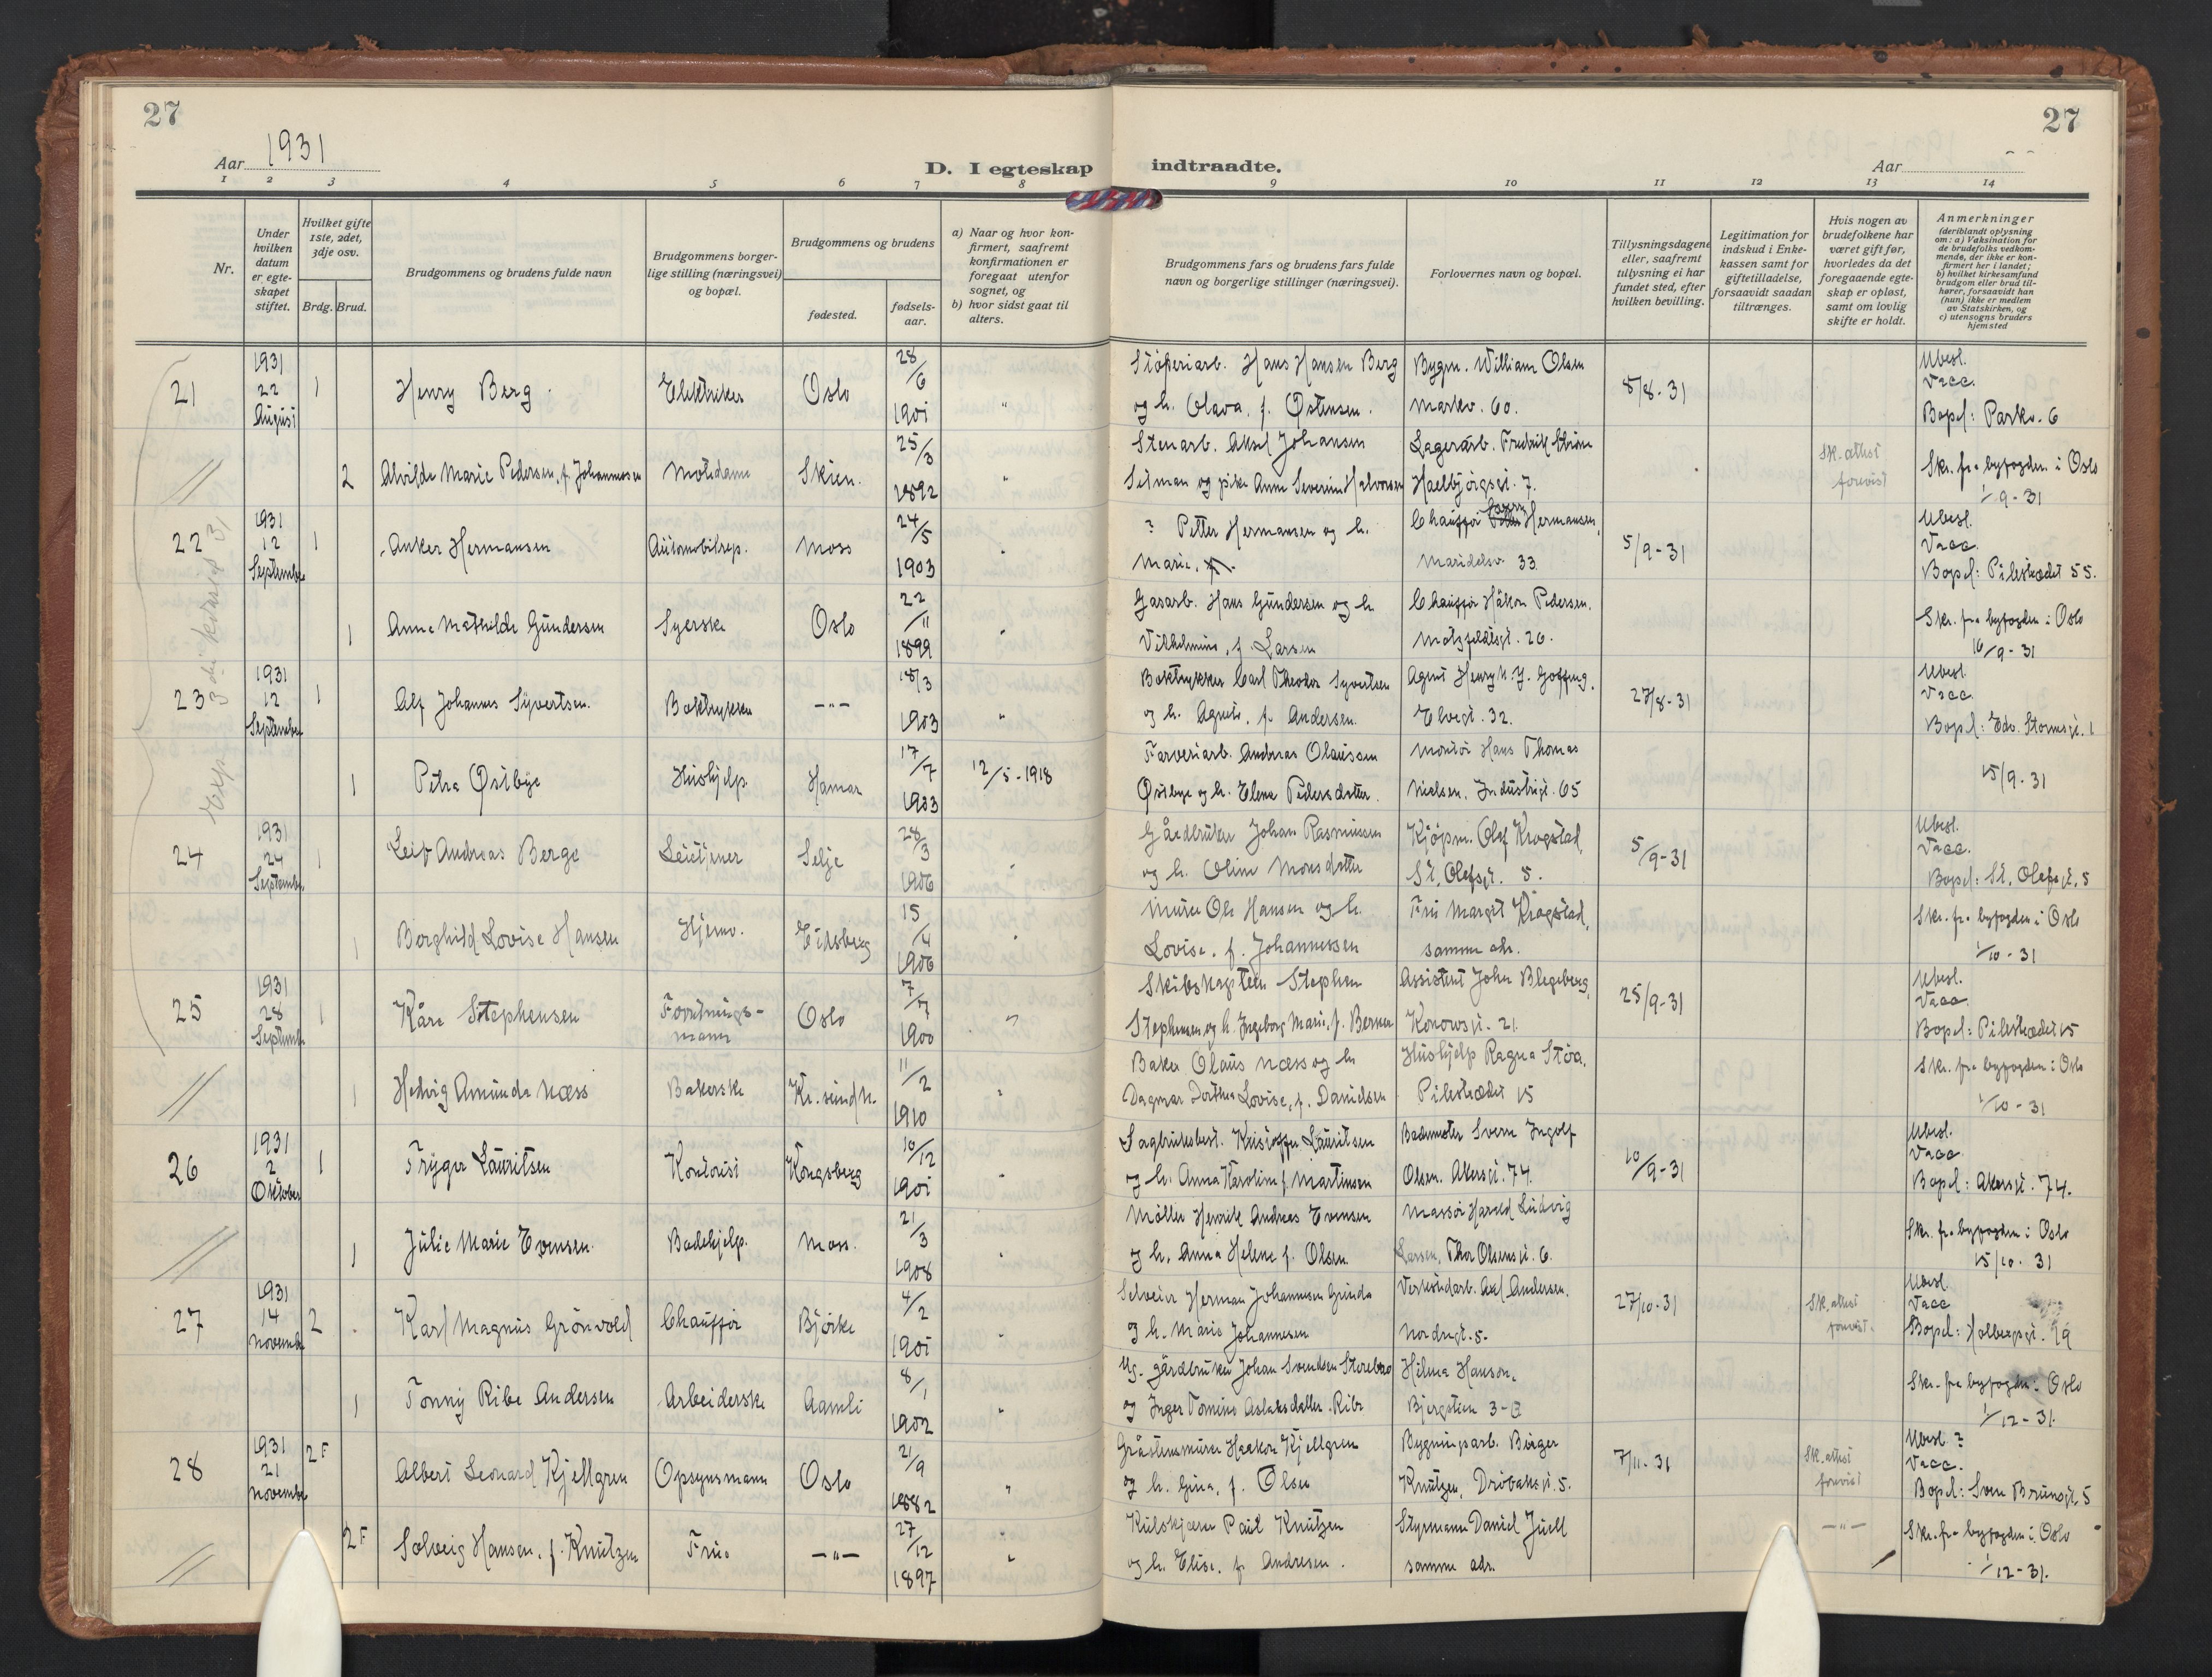 27
27
Aar 1931
D. I egteskap indtraadte.
Aar
1 2 3 4 5 6 7 8 9 10 11 12 13 14
Nr.
Under hvilken datum er egteskapet stiftet.
Hvilket gifte 1ste, 2det, 3dje osv.
Brdg. Brud.
Brudgommens og brudens fulde navn
Brudgommens borgerlige stilling (næringsvei) og bopæl.
Brudgommens og brudens
fødested.
fødselsaar.
a) Naar og hvor konfirmert, saafremt konfirmationen er foregaat utenfor sognet, og
b) hvor sidst gaat til alters.
Brudgommens fars og brudens fars fulde navn og borgerlige stillinger (næringsvei).
Forlovernes navn og bopæl.
Tillysningsdagene eller, saafremt tillysning ei har fundet sted, efter hvilken bevilling.
Legitimation for indskud i Enkekassen samt for giftetilladelse, forsaavidt saadan tiltrænges.
Hvis nogen av brudefolkene har været gift før, hvorledes da det foregaaende egteskap er opløst, samt om lovlig skifte er holdt.
Anmerkninger (deriblandt oplysning om: a) Vaksination for de brudefolks vedkommende, der ikke er konfirmert her i landet; b) hvilket kirkesamfund brudgom eller brud tilhører, forsaavidt han (hun) ikke er medlem av Statskirken, og c) utensogns bruders hjemsted
21 1931 22 August 1 Henry Berg. Elektriker Oslo 28/6 1901 " Støperiarb. Hans Hansen Berg og h. Olava, f. Østensen. Bygm. William Olsen Markv. 60. 5/8-31 Ubesl. Vacc. Bopel: Parkv. 6
2 Alvilde Marie Pedersen, f. Johannessen Motedame Skien. 25/3 1892 " Stenarb. Aksel Johansen Setman og pike Anne Severine Halvorsen Lagerarb. Fredrik Strøm 7. Sk. attest forevist Skr. fra byfogden i Oslo 1/9-31
22 1931 12 September 1 Anker Hermansen Automobilrep. Moss 24/5 1903 " ? Petter Hermansen og h. Marie, f. Chauffør Hermansen, Maridalsv. 33. 5/9-31 Ubesl. Vacc. Bopel: Pilestrædet 55.
1 Anne Mathilde Gundersen Syerske Oslo 22/11 1899 " Gasarb. Hans Gundersen og h. Vilhelmine, f. Larsen Chauffør Håkon Pedersen. Motzfeldtsgt. 26. Skr. fra byfogden i Oslo 16/9-31
23 1931 12 September 1 Alf Johannes Syvertsen. Boktrykker —"— 18/3 1903 " Boktrykker Carl Theodor Syvertsen og h. Agnete, f. Andersen. Agent Henry Elvegt. 32. 27/8-31 Ubesl. Vacc. Bopel: Edv. Stormsgt. 1
1 Petra Østbye Hushjelp. Hamar 17/7 1903 12/5-1918 Farveriarb. Andreas Olaussen Østbye og h. Elena Pedersdatter. Montør Hans Thomas Nielsen. Industrigt. 65 15/9-31
24 1931 24 September 1 Leif Andreas Berge Selje 28/3 1906 " Gårdbruker Johan Rasmussen og h. Oline Monsdatter Kjøpm. Olaf Krogstad, St. Olafsgt. 5. 5/9-31 Ubesl. Vacc. Bopel: St. Olafsgt. 5
1 Borghild Lovise Hansen Hjemv. Eidsberg 15/4 1906 " Murer Ole Hansen og h. Lovise, f. Johannessen Fru Margit Krogstad, samme adr. Skr. fra byfogden i Oslo 1/10-31
25 1931 28 September 1 Kåre Stephensen Forretningsmann Oslo 7/7 1900 " Skibskaptein Stephen Stephensen og h. Ingeborg Marie, f. Bernen Assistent John Blegeberg, Konowsgt. 21. 25/9-31 Ubesl. Vacc. Bopel: Pilestrædet 15
1 Hedvig Amunda Næss Bakerske Kr.sund N. 11/2 1910 " Baker Olaus Næss og h. Dagmar Dorthea Lovise, f. Danielsen Hushjelp Ragna Støa. Pilestrædet 15 Skr. fra byfogden i Oslo 1/10-31
26 1931 2 Oktober 1 Trygve Lauritsen Kontorist Kongsberg 10/12 1901 " Sagbruksbest. Kristoffer Lauritsen og h. Anna Karoline f. Martinsen Bademester Svern Ingolf Olsen. Akersgt. 74. 10/9-31 Ubesl. Vacc. Bopel: Akersgt. 74.
1 Julie Marie Evensen. Badehjelp. Moss. 21/3 1908 " Møller Henrik Andreas Evensen og h. Anna Helene f. Olsen Massør Harald Ludvig Larsen, Thor Olsensgt. 6. Skr. fra byfogden i Oslo 15/10-31
27 1931 14 November 2 Karl Magnus Grønvold Chauffør Bjørke 4/2 1901 Selveier Herman Johannesen og h. Marie Johannesen Verkstedarb. Axel Andersen. Nordregt. 5. 27/10-31 Sk. attest forevist. Ubesl. Vacc Bopel: Holbergsgt. 19
1 Tonny Ribe Andersen Arbeiderske Aamli 8/1 1902 " Ug. gårdbruker Johan Svendsen og Inger Tomine Aslaksdatter Ribe Hilma Hanson. Bjergstien 3-B Skr. fra byfogden i Oslo 1/12-31.
28 1931 21 November 2F Albert Leonard Kjellgren Opsynsmann Oslo 21/9 1882 " Gråstensmurer Haakon Kjellgren og h. Gina, f. Olsen Bygningsarb. Birger Knutzen, Drøbaksgt. 5. 7/11-31 Sk. attest forevist Ubesl. ? Vacc. Bopel: Sven Brunsgt. 5
2F Solveig Hansen, f. Knutzen Frue —"— 27/12 1897 " Kulskjører Paul Knutzen og h. Elise, f. Andresen. Styrmann Daniel Juell samme adr. —"— Skr. fra byfogden i Oslo 1/12-31.